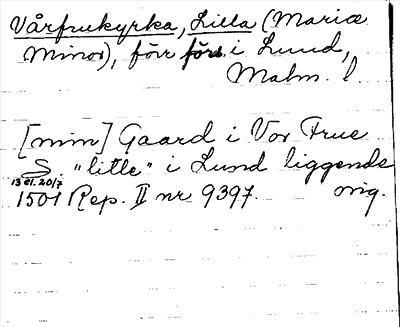 Vårfrukyrka, Lilla (Mariæ
Minor), förr förs. i Lund,
Malm. l.
[min] Gaard i Vor Frue
S. "litle" i Lund liggends
13 el. 20/7
1501 Rep. II nr 9397. orig.